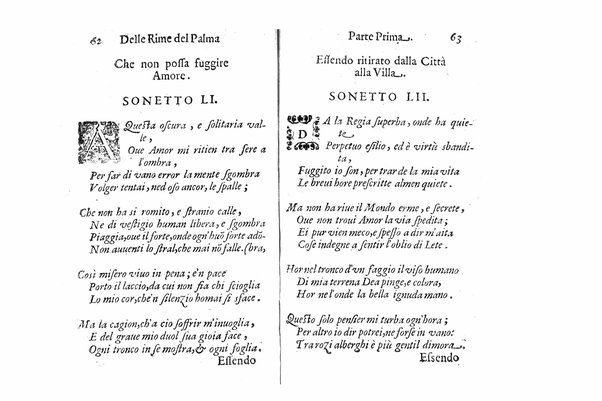 62 Delle Rime del Palma
Che non possa fuggire
Amore.
SONETTO LI.
A Questa oscura, e solitaria val-
le,
Oue Amor mi ritien tra fere a
l'ombra,
Per far di vano error la mente sgombra
Volger tentai, ned oso ancor, le spalle;
Che non ha si romito, e stranio calle,
Ne di vestigio human libera, e sgombra
Piaggia, oue il forte, onde ogn'huõ forte adõ-
Non auuenti lo stral, che mai nõ falle. (bra,
Così misero viuo in pena; e'n pace
Porto il laccio, da cui non fia chi scioglia
Lo mio cor, che'n silenzio homai si sface.
Ma la cagion, ch'a cio soffrir m'inuoglia,
E del graue mio duol sua gioia face,
Ogni tronco in se mostra, & ogni foglia.
Essendo
Parte Prima. 63
Essendo ritirato dalla Città
alla Villa.
SONETTO LII.
DA la Regia superba, onde ha quie-
te
Perpetuo esilio, ed è virtù sbandi-
ta,
Fuggito io son, per trar de la mia vita
Le breui hore prescritte almen quiete.
Ma non ha riue il Mondo erme, e secrete,
Oue non troui Amor la via spedita;
Ei pur vien meco, e spesso a dir m'aita
Cose indegne a sentir l'oblio di Lete.
Hor nel tronco d'vn faggio il viso humano
Di mia terrena Dea pinge, e colora,
Hor ne l'onde la bella ignuda mano.
Questo solo pensier mi turba ogn'hora;
Per altro io dir potrei, ne forse in vano:
Tra rozi alberghi è più gentil dimora.
Essendo